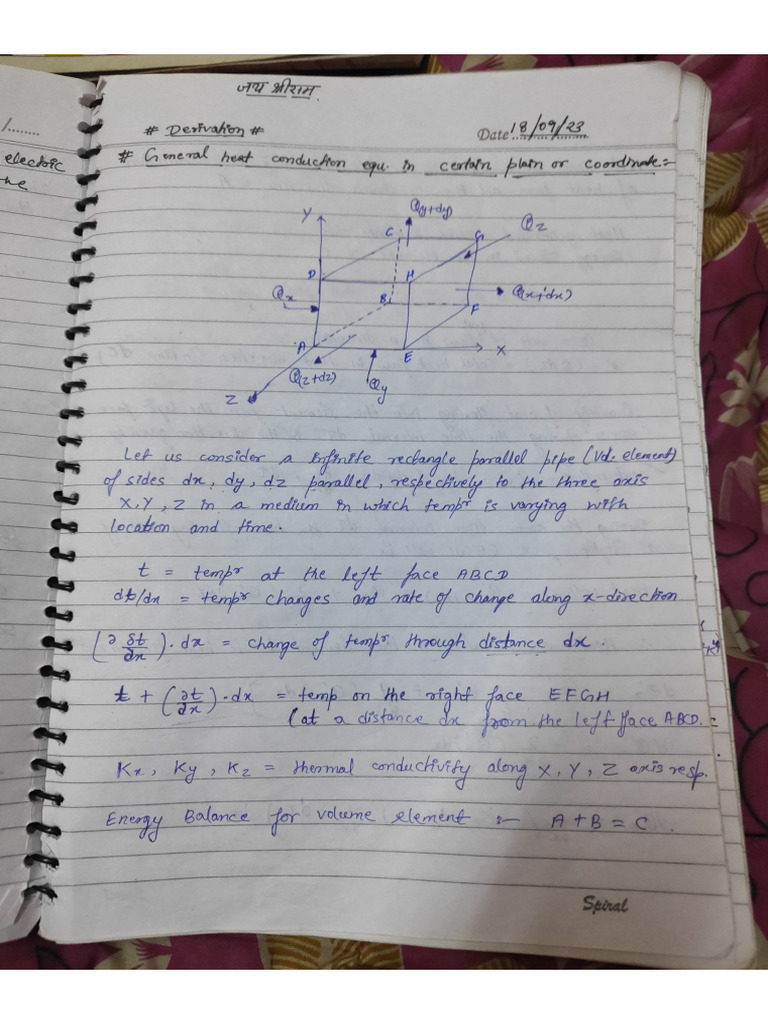 जय श्रीराम.
/........
electric
ne
# Derivation #
Date 18/09/23
# General heat conduction equ. in certain plain or coordinate:-
Y
Q(y+dy)
Qz
C
G
D
H
Qx
B
Q(x+dx)
F
A
E
X
Q(z+dz)
Qy
Z
Let us consider a infinite rectangle parallel pipe (Vol. element)
of sides dx, dy, dz parallel, respectively to the three axis
X, Y, Z in a medium in which tempr is varying with
location and time.
t = tempr at the left face ABCD
dt/dx = tempr changes and rate of change along x-direction
(∂ δt/∂x) . dx = change of tempr through distance dx.
t + (∂t/∂x) . dx = temp on the right face EFGH
(at a distance dx from the left face ABCD.
Kx, Ky, Kz = thermal conductivity along X, Y, Z axis resp.
Energy Balance for volume element :- A + B = C.
Spiral